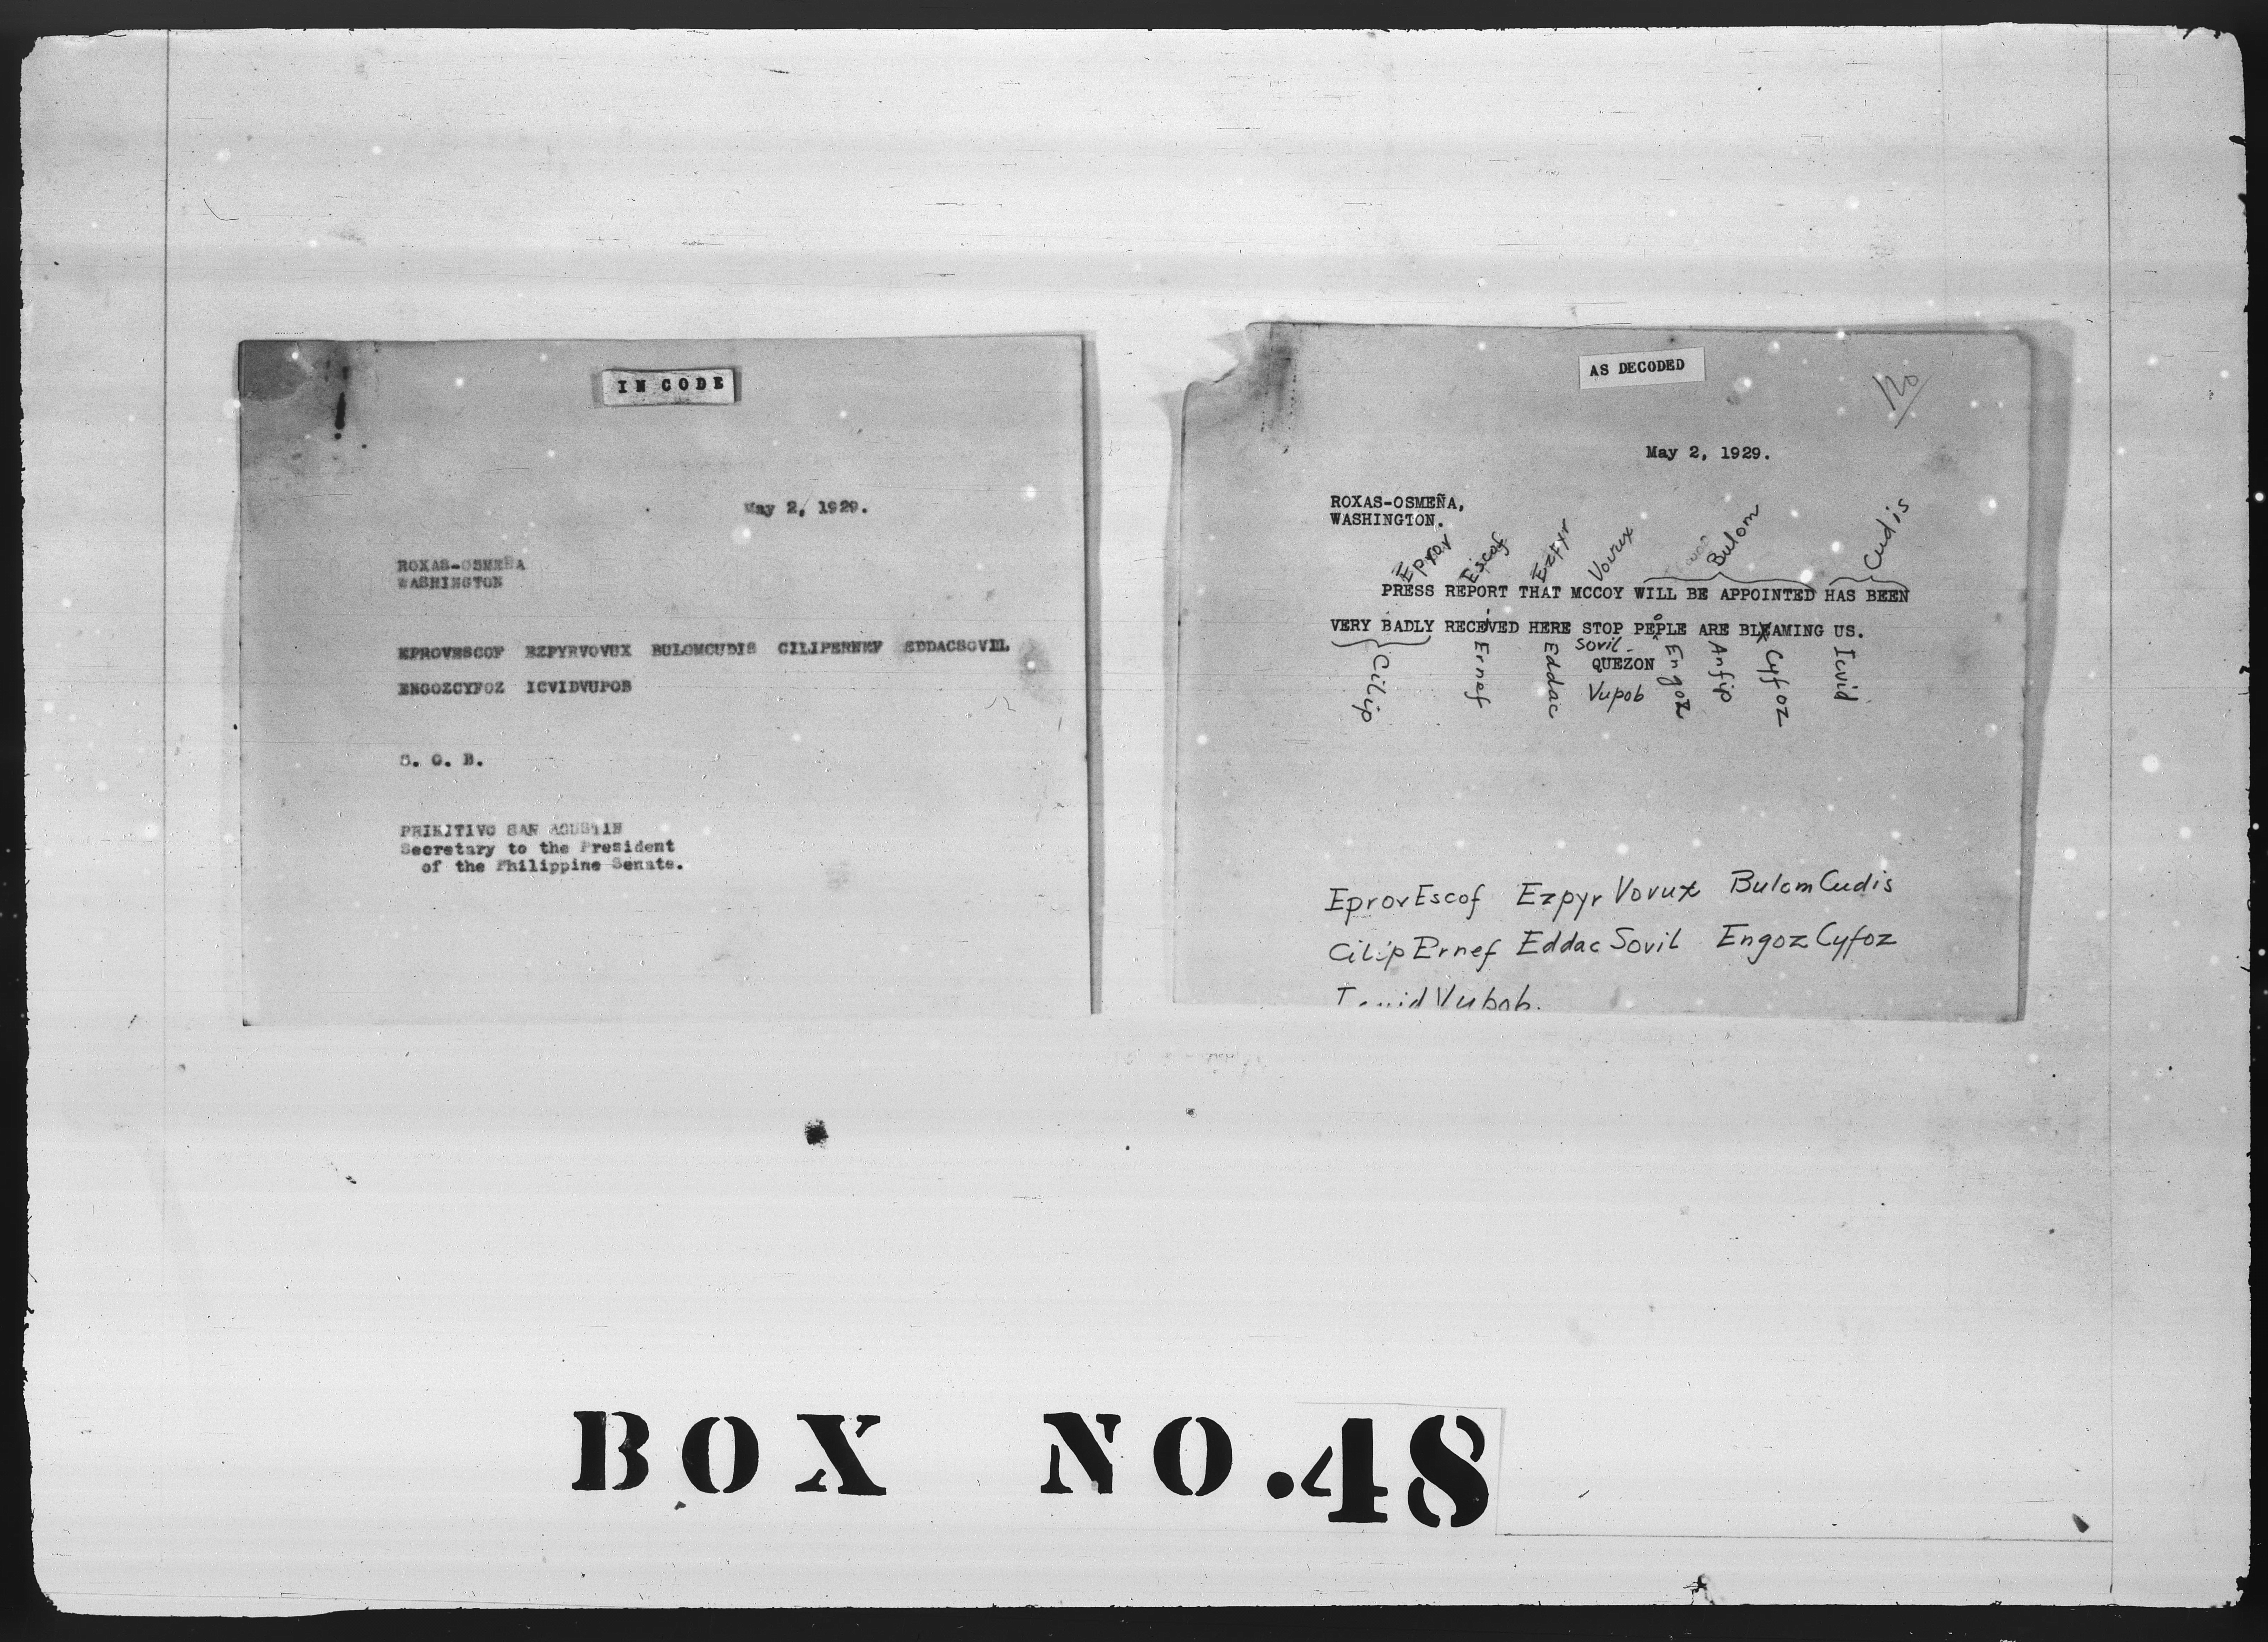 IN CODE
May 2, 1929.
ROXAS-OSMEÑA
WASHINGTON
EPROVESCOF EZPYRVOVUX BULOMCUDIS CILIPERNEF EDDACSOVIL
ENGOZCYFOZ ICVIDVUPOB
S. G. B.
PRIMITIVO SAN AGUSTIN
Secretary to the President
of the Philippine Senate.
AS DECODED
120
May 2, 1929.
ROXAS-OSMEÑA,
WASHINGTON.
Eprov Escof Ezpyr Vovux Bulom Cudis
PRESS REPORT THAT MCCOY WILL BE APPOINTED HAS BEEN
VERY BADLY RECEIVED HERE STOP PEOPLE ARE BLAMING US.
Cilip Ernef Eddac Sovil Engoz Anfip Cyfoz Icvid
QUEZON
Vupob
EprovEscof Ezpyr Vovux BulomCudis
CilipErnef Eddac Sovil EngozCyfoz
Icvid Vupob.
BOX NO.48